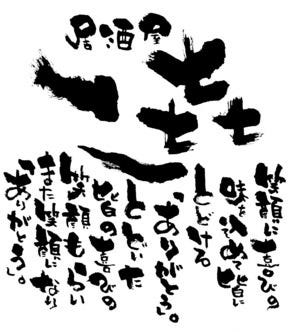 居酒屋
二㐂
笑顔に喜びの
味を込めて皆に
とどける。
「ありがとう。」
とどいた
皆の喜びの
笑顔もらい
また笑顔になり
「ありがとう。」